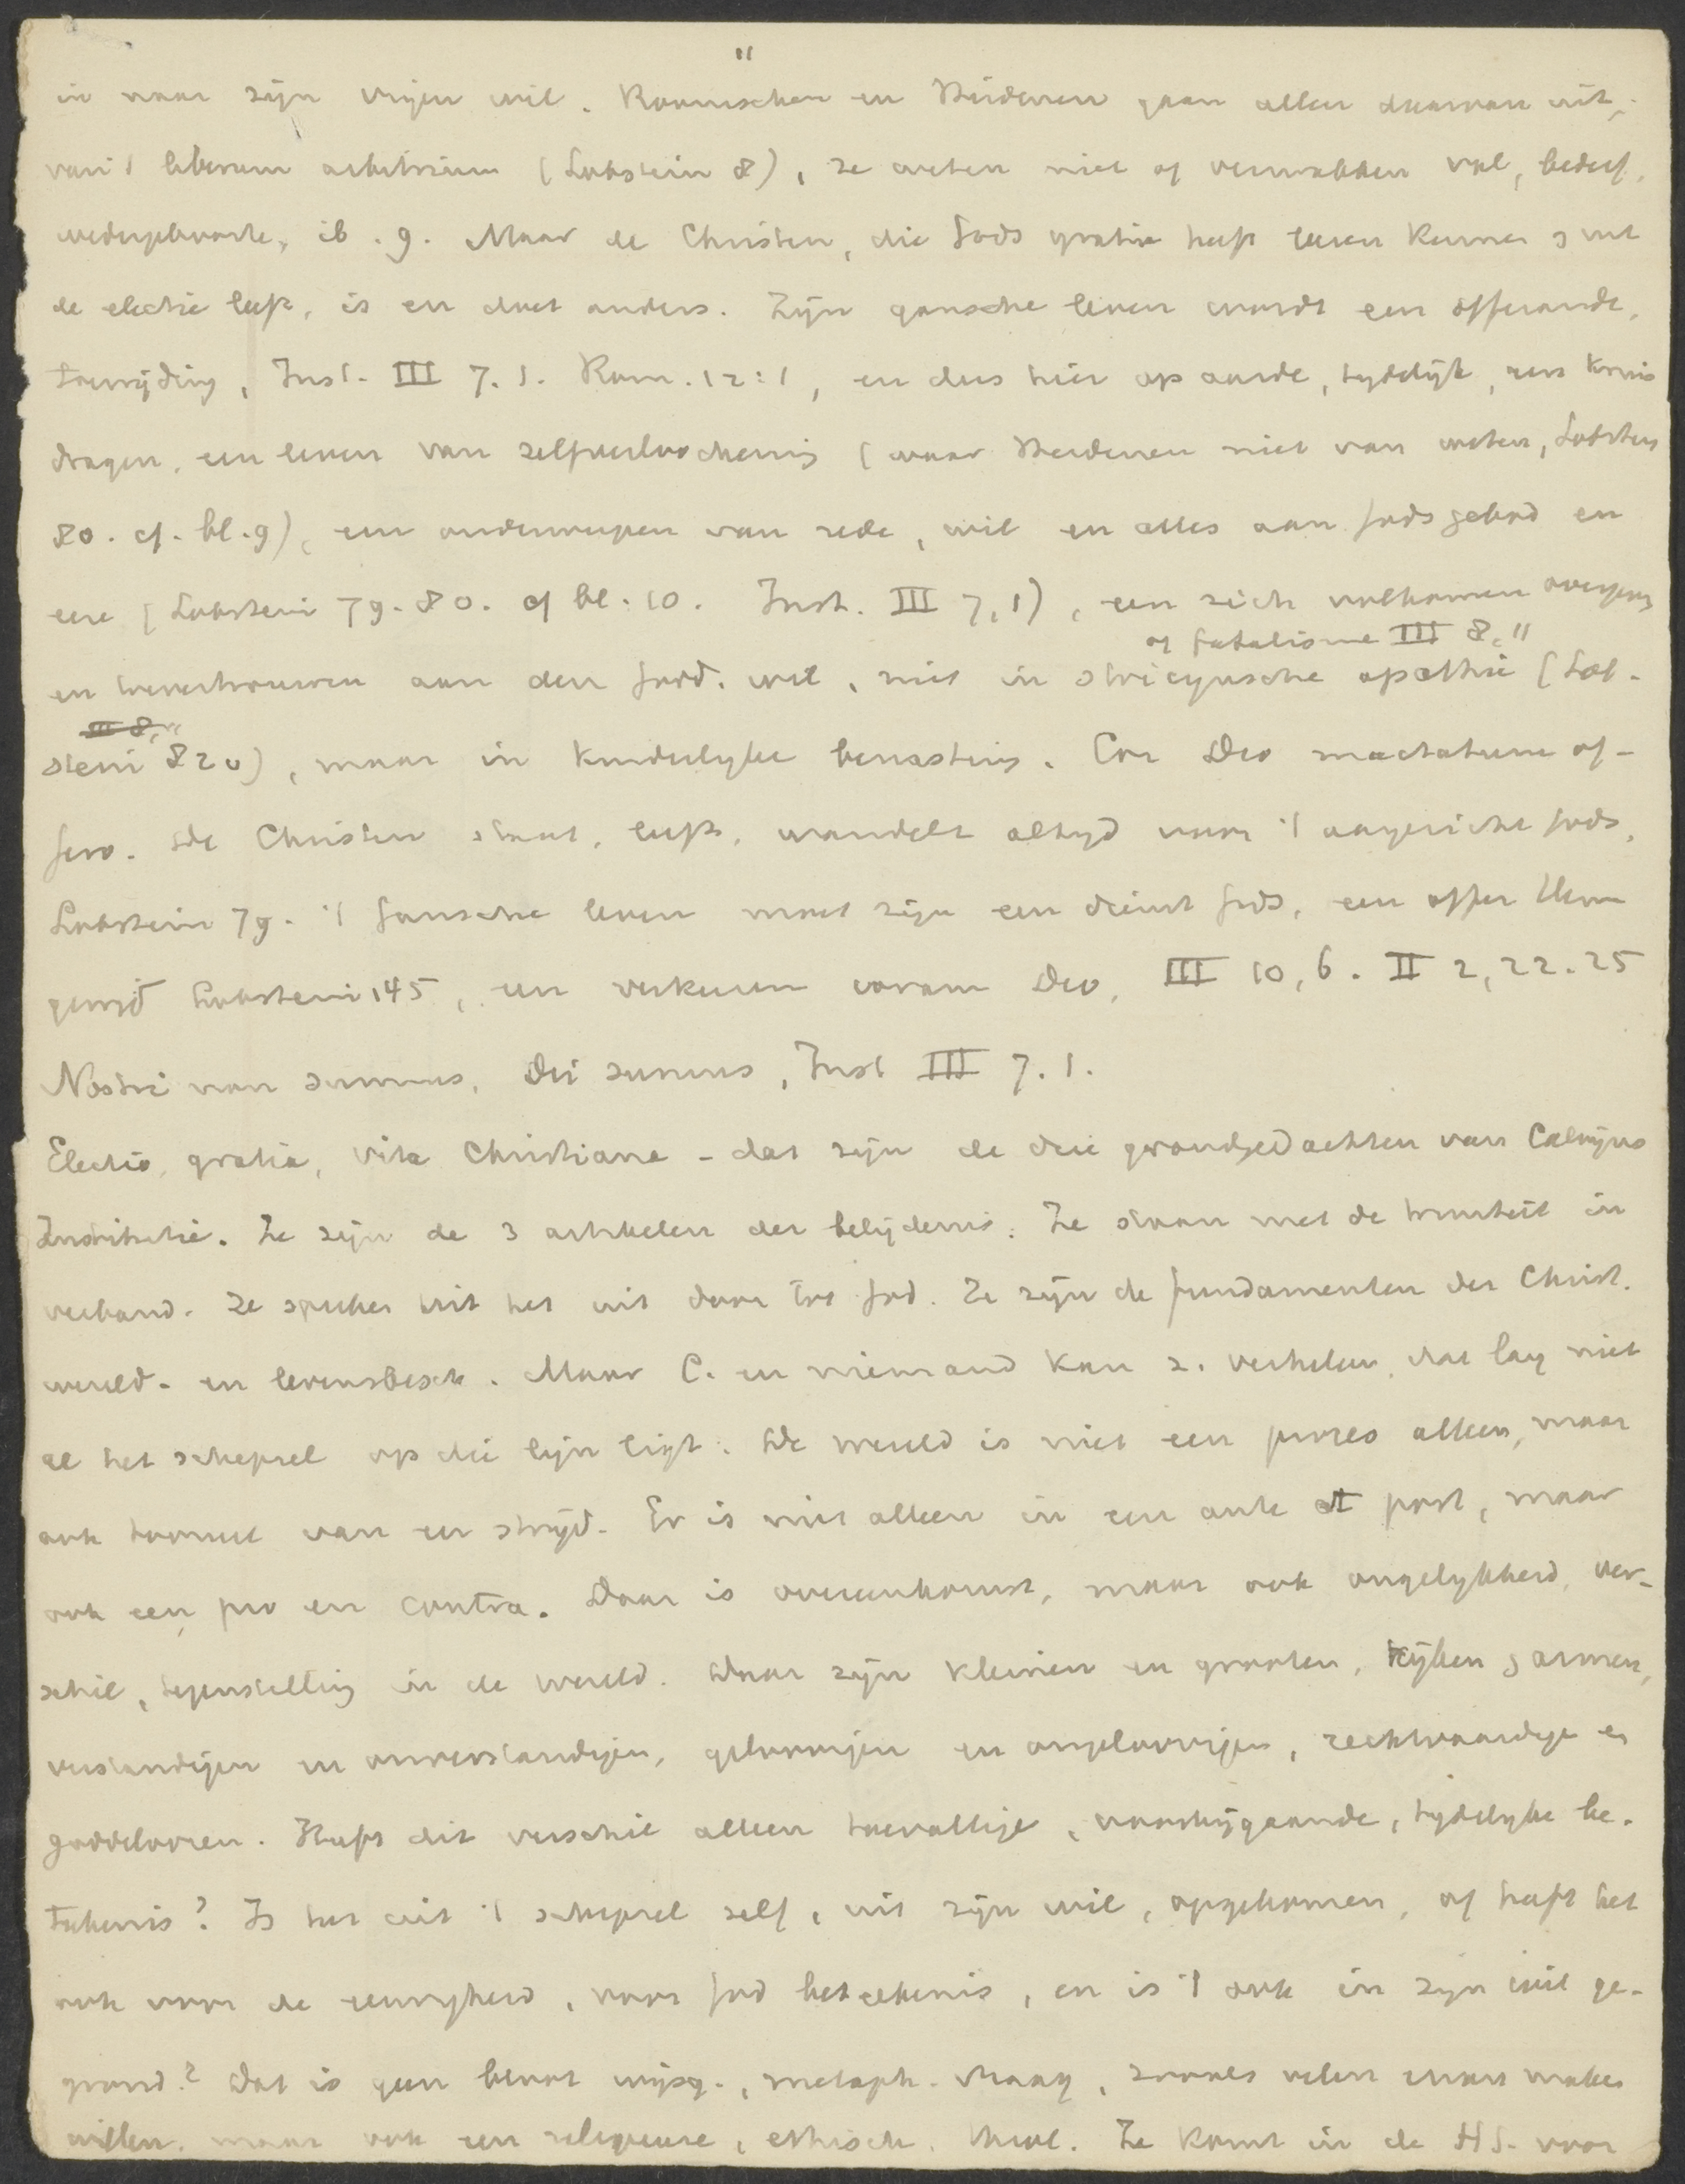 11
in naar zijn vrijen wil. Roomschen en Heidenen gaan allen daarvan uit,
van 't liberum arbitrium (Lobstein 8), ze weten niet of verwabben val, bederf,
wedergeboorte, ib. 9. Maar de Christen, die Gods gratia heeft leeren kennen & uit
de electie leeft, is en doet anders. Zijn gansche leven wordt een offerande,
toewijding, Inst. III 7.1. Rom. 12:1, en dus hier op aarde, tydelijk, een kruis
dragen, een leven van zelfverloochening (waar Heidenen niet van weten, Lobstein
80. cf. bl. 9), een onderwerpen van rede, wil en alles aan Gods gebod en
eere (Lobstein 79. 80. cf bl. 10. Inst. III 7,1), een zich volkomen overgeven
of fatalisme III 8, 11
en toevertrouwen aan den Godd. wil, niet in stoicynsche apathie (Lob-
III 8, 11
stein 82 v), maar in kinderlyke berusting. Cor Deo mactatum of-
fero. De Christen staat, leeft, wandelt altyd voor 't aangezicht Gods,
Lobstein 79. 't Gansche leven moet zijn een dienst Gods, een offer Hem
gewijd Lobstein 145, een verkeeren coram Deo, III 10,6. II 2,22.25
Nostri non sumus, Dei sumus, Inst III 7.1.
Electio, gratia, vita Christiana - dat zijn de drie grondgedachten van Calvijns
Institutie. Ze zijn de 3 artikelen der belijdenis. Ze staan met de triniteit in
verband. Ze spreken het uit door tot God. Ze zijn de fundamenten der Christ.
wereld- en levensbesch. Maar C. en niemand kan z. verhelen, dat lang niet
al het schepsel op die lijn ligt. De wereld is niet een proces alleen, maar
ook tooneel van een strijd. Er is niet alleen in een ante et post, maar
ook een pro en contra. Daar is overeenkomst, maar ook ongelykheid, ver-
schil, tegenstelling in de wereld. Daar zijn kleinen en grooten, rijken & armen,
verstandigen en onverstandigen, geloovigen en ongeloovigen, rechtvaardige en
goddeloozen. Heeft dit verschil alleen toevallige, voorbijgaande, tydelyke be-
teekenis? Is het uit 't schepsel zelf, uit zijn wil, opgekomen, of heeft het
ook voor de eeuwigheid, voor God beteekenis, en is 't ook in zijn wil ge-
grond? Dat is geen bloot wijsg., metaph. vraag, zooals velen ervan maken
willen, maar ook een religieuse, ethisch. theol. Ze komt in de HS. voor